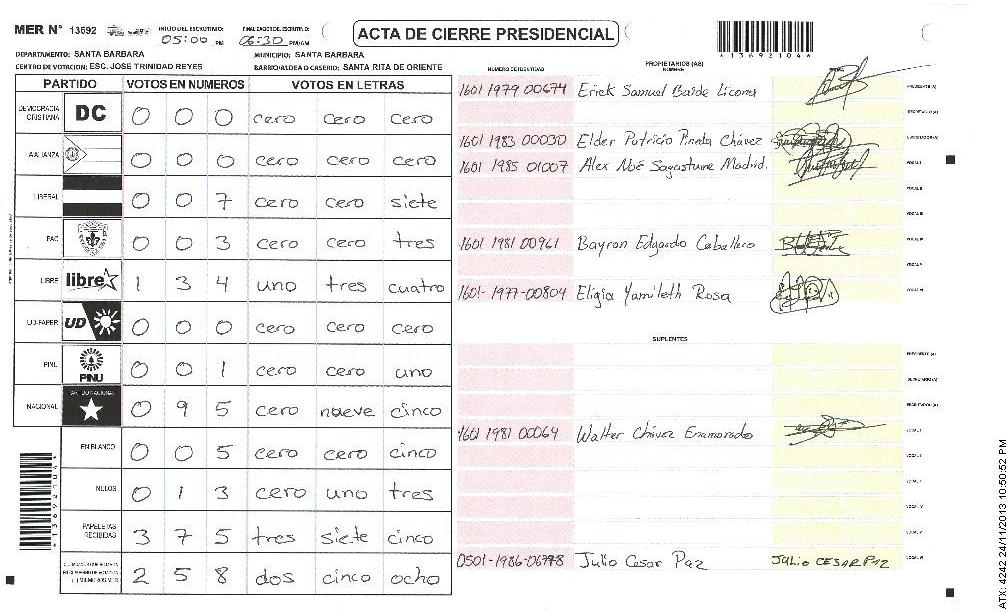 MER N° 13692
INICIO DEL ESCRUTINIO: 05:00 PM
FINALIZACION DEL ESCRUTINIO: 06:30 PM/AM
ACTA DE CIERRE PRESIDENCIAL
*13692104*
DEPARTAMENTO: SANTA BARBARA
MUNICIPIO: SANTA BARBARA
CENTRO DE VOTACION: ESC. JOSE TRINIDAD REYES
BARRIO/ALDEA O CASERIO: SANTA RITA DE ORIENTE
PARTIDO VOTOS EN NUMEROS VOTOS EN LETRAS
DEMOCRACIA CRISTIANA DC 0 0 0 cero cero cero
ALIANZA 0 0 0 cero cero cero
LIBERAL 0 0 7 cero cero siete
PAC 0 0 3 cero cero tres
LIBRE libre 1 3 4 uno tres cuatro
UD-FAPER UD 0 0 0 cero cero cero
PINU PINU 0 0 1 cero cero uno
NACIONAL PARTIDO NACIONAL 0 9 5 cero nueve cinco
EN BLANCO 0 0 5 cero cero cinco
NULOS 0 1 3 cero uno tres
PAPELETAS RECIBIDAS 3 7 5 tres siete cinco
2 5 8 dos cinco ocho
NUMERO DE IDENTIDAD
PROPIETARIOS (AS)
NOMBRE
1601 1979 00674 Erick Samuel Baide Licona PRESIDENTE (A)
SECRETARIO (A)
1601 1983 00030 Elder Patricio Pineda Chávez ESCRUTADOR (A)
1601 1985 01007 Alex Noé Sagastume Madrid. VOCAL I
VOCAL II
VOCAL III
1601 1981 00961 Bayron Edgardo Caballero VOCAL IV
VOCAL V
1601-1977-00804 Eligia Yamileth Rosa VOCAL VI
SUPLENTES
PRESIDENTE (A)
SECRETARIO (A)
ESCRUTADOR (A)
1601 1981 00064 Walter Chávez Enamorado VOCAL I
0501-1986-06778 Julio Cesar Paz JULIO CESAR PAZ
ATX: 4242 24/11/2013 10:50:52 PM